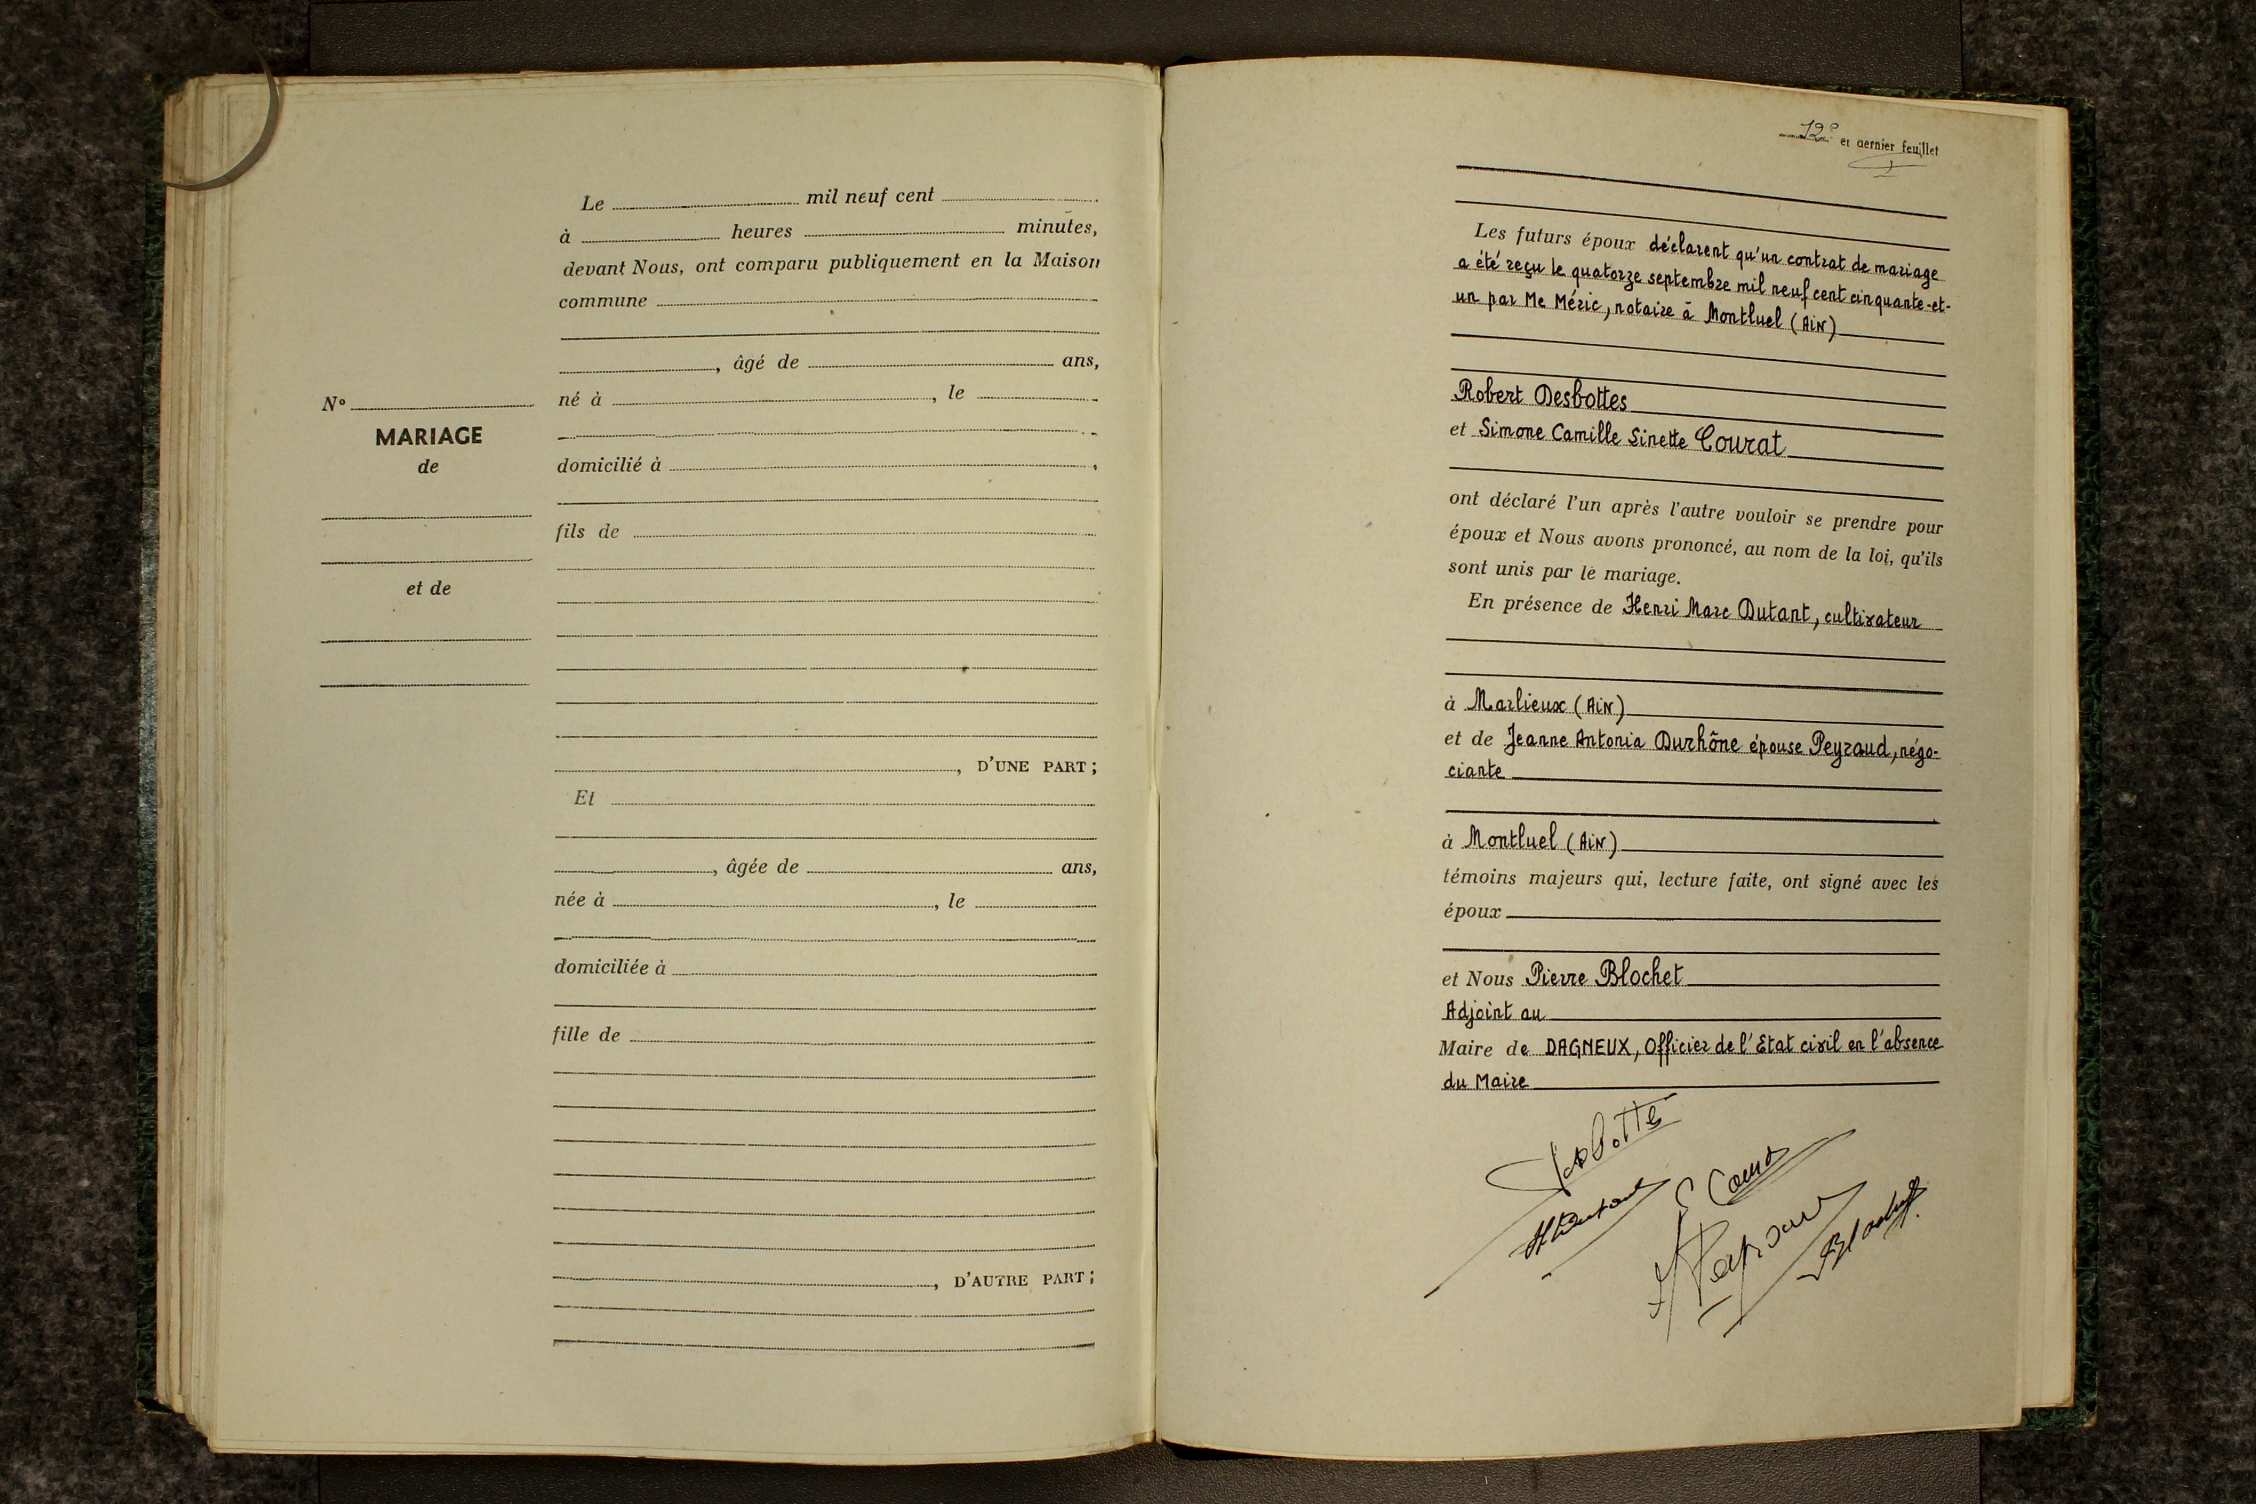 Le mil neuf cent
à heures minutes,
devant Nous, ont comparu publiquement en la Maison
commune
, âgé de ans,
né à , le
domicilié à ,
fils de
, D'UNE PART ;
Et
, âgée de ans,
née à , le
domiciliée à
fille de
, D'AUTRE PART ;
N°
MARIAGE
de
et de
12e et dernier feuillet
Les futurs époux déclarent qu'un contrat de mariage
a été reçu le quatorze septembre mil neuf cent cinquante-et-
un par Me Méric, notaire à Montluel (AiN)
Robert Desbottes
et Simone Camille Sinette Courat
ont déclaré l'un après l'autre vouloir se prendre pour
époux et Nous avons prononcé, au nom de la loi, qu'ils
sont unis par le mariage.
En présence de Henri Marc Dutant, cultivateur
à Marlieux (AiN)
et de Jeanne Antonia Durhône épouse Peyraud, négo-
ciante
à Montluel (AiN)
témoins majeurs qui, lecture faite, ont signé avec les
époux
et Nous Pierre Blochet
Adjoint au
Maire de DAGNEUX, Officier de l'Etat civil en l'absence
du Maire